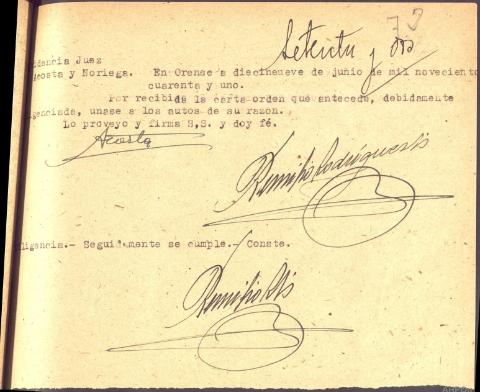 72
Setenta y dos
dencia Juez
Acosta y Noriega. En Orense a diecinueve de junio de mil noveciento
cuarenta y uno.
Por recibida la carta orden que antecede, debidamente
igenciada, unase a los autos de su razón.
Lo proveyo y firma S,S. y doy fé.
Acosta
Remigio Rodríguez
ligencia.- Seguidamente se cumple.- Conste.
Remigio